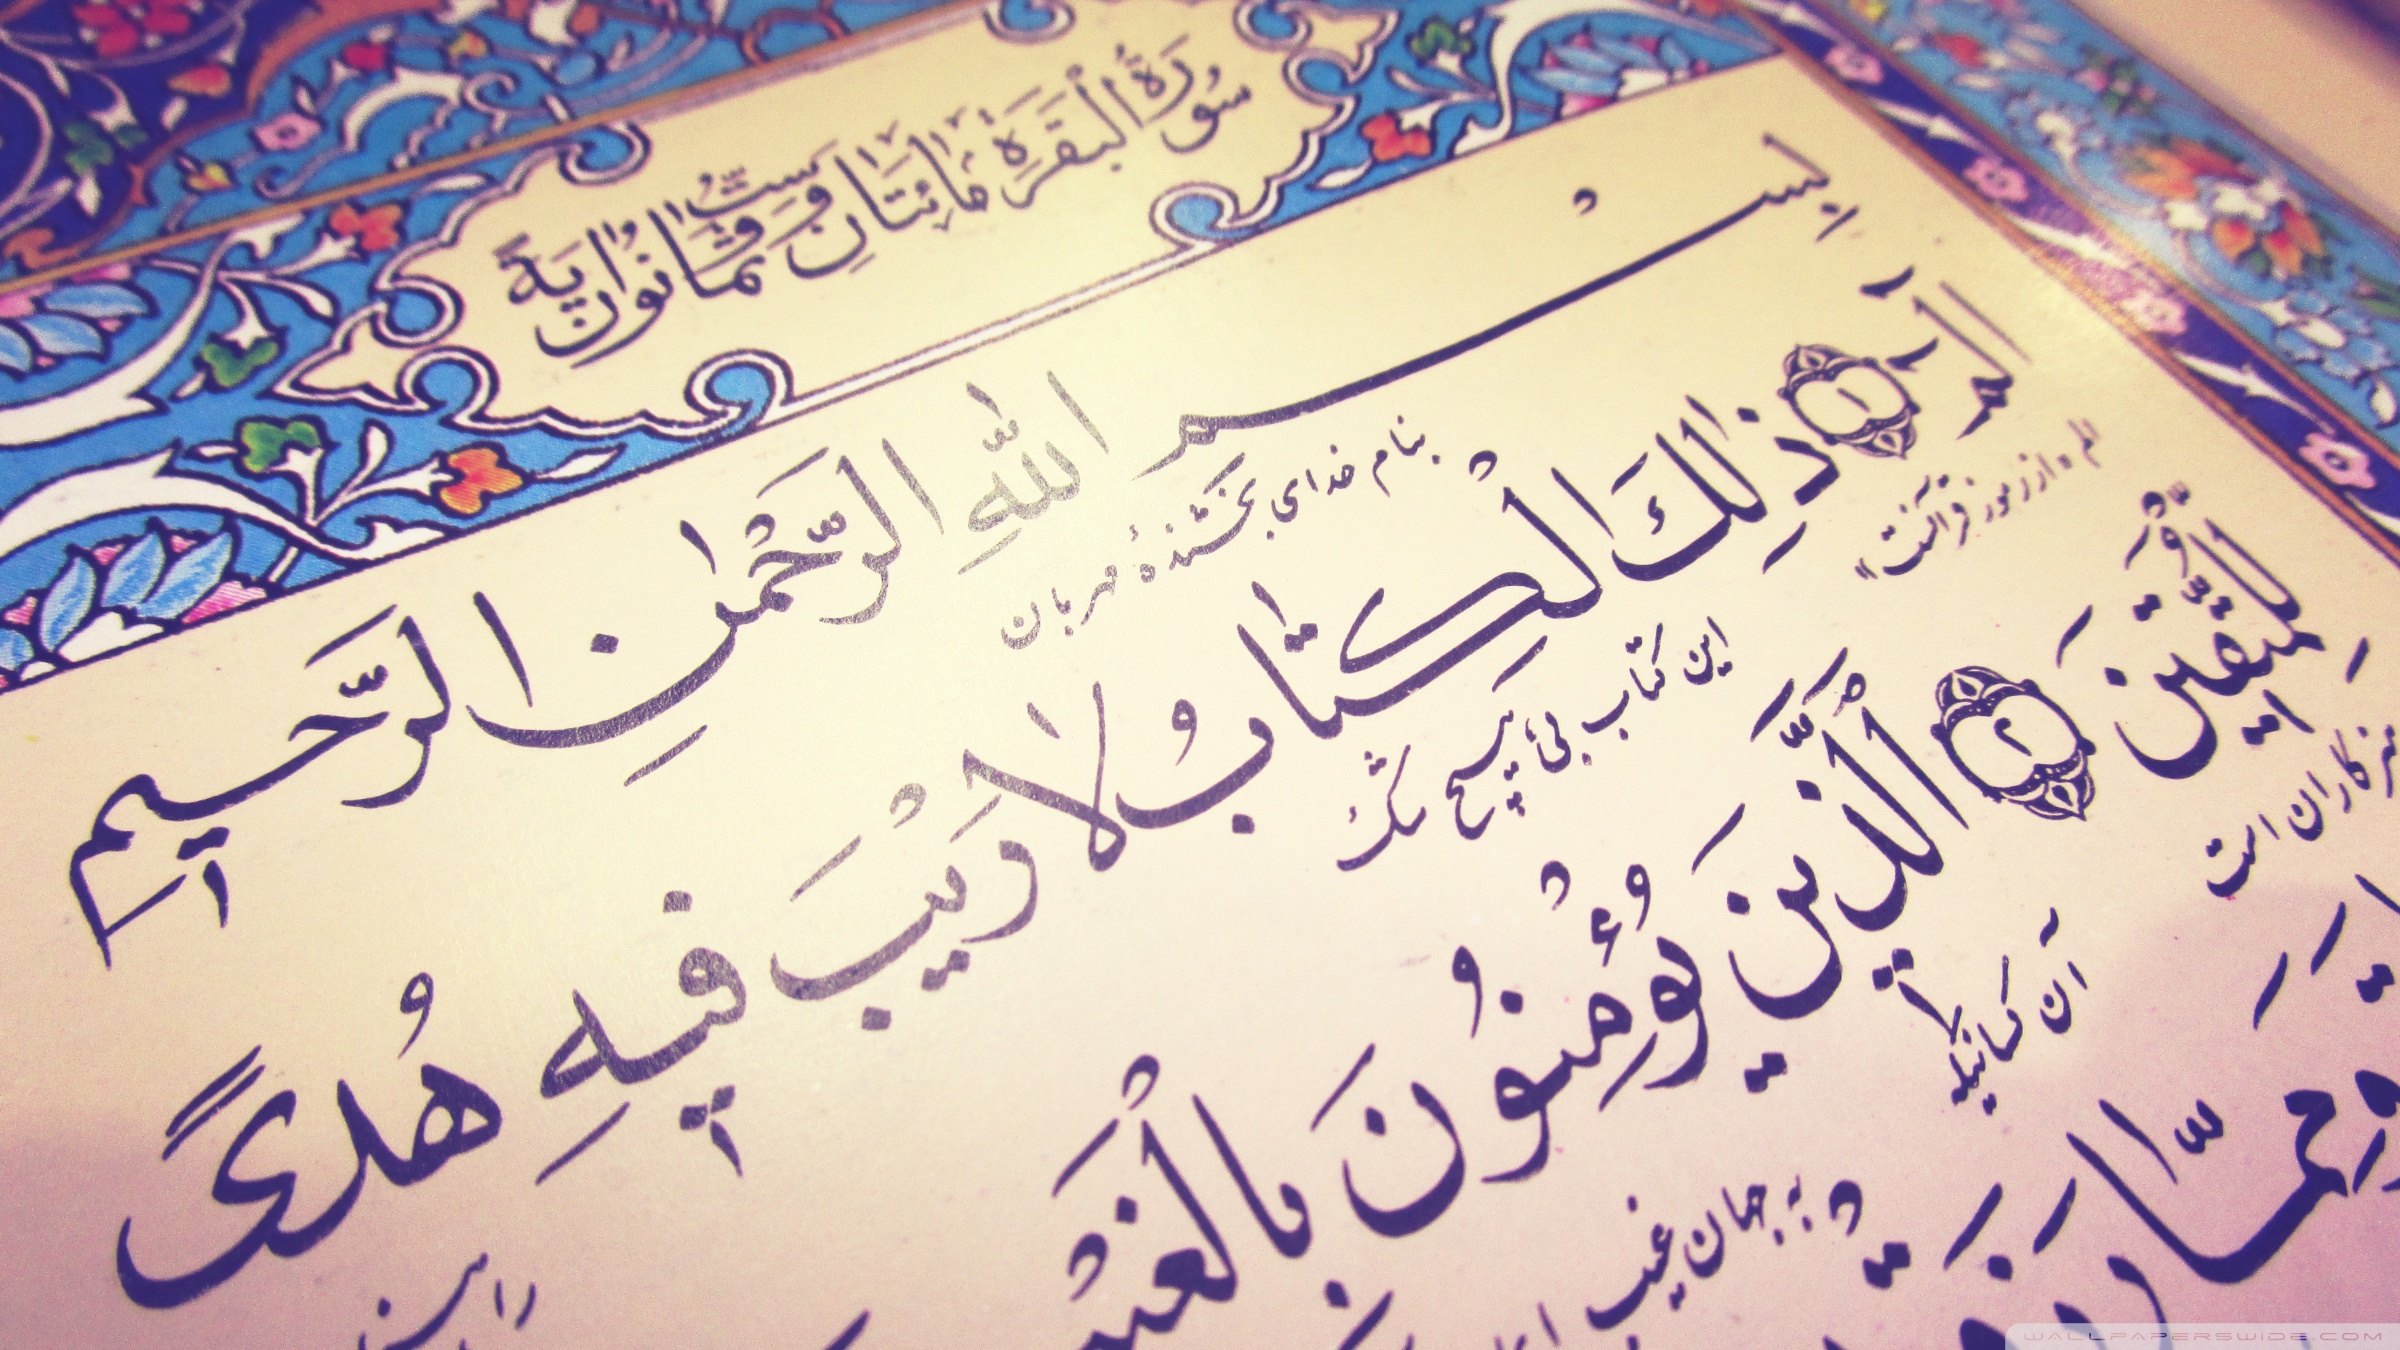 سُورَةُ الْبَقَرَةِ مِائَتَانِ وَسِتُّ وَثَمَانُونَ ايَةً
بِسْمِ اللّٰهِ الرَّحْمٰنِ الرَّحِيمِ
بنام خدای بخشندهٔ مهربان
الٓمٓ ﴿١﴾ ذٰلِكَ الْكِتَابُ لَا رَيْبَ فِيهِ هُدًى
الم «از رموز قرآنست» این کتاب بی هیچ شک راه
لِلْمُتَّقِينَ ﴿٢﴾ اَلَّذِينَ يُؤْمِنُونَ بِالْغَيْبِ
است آن کسانیکه به جهان غیب
وَمِمَّا
WALLPAPERSWIDE.COM